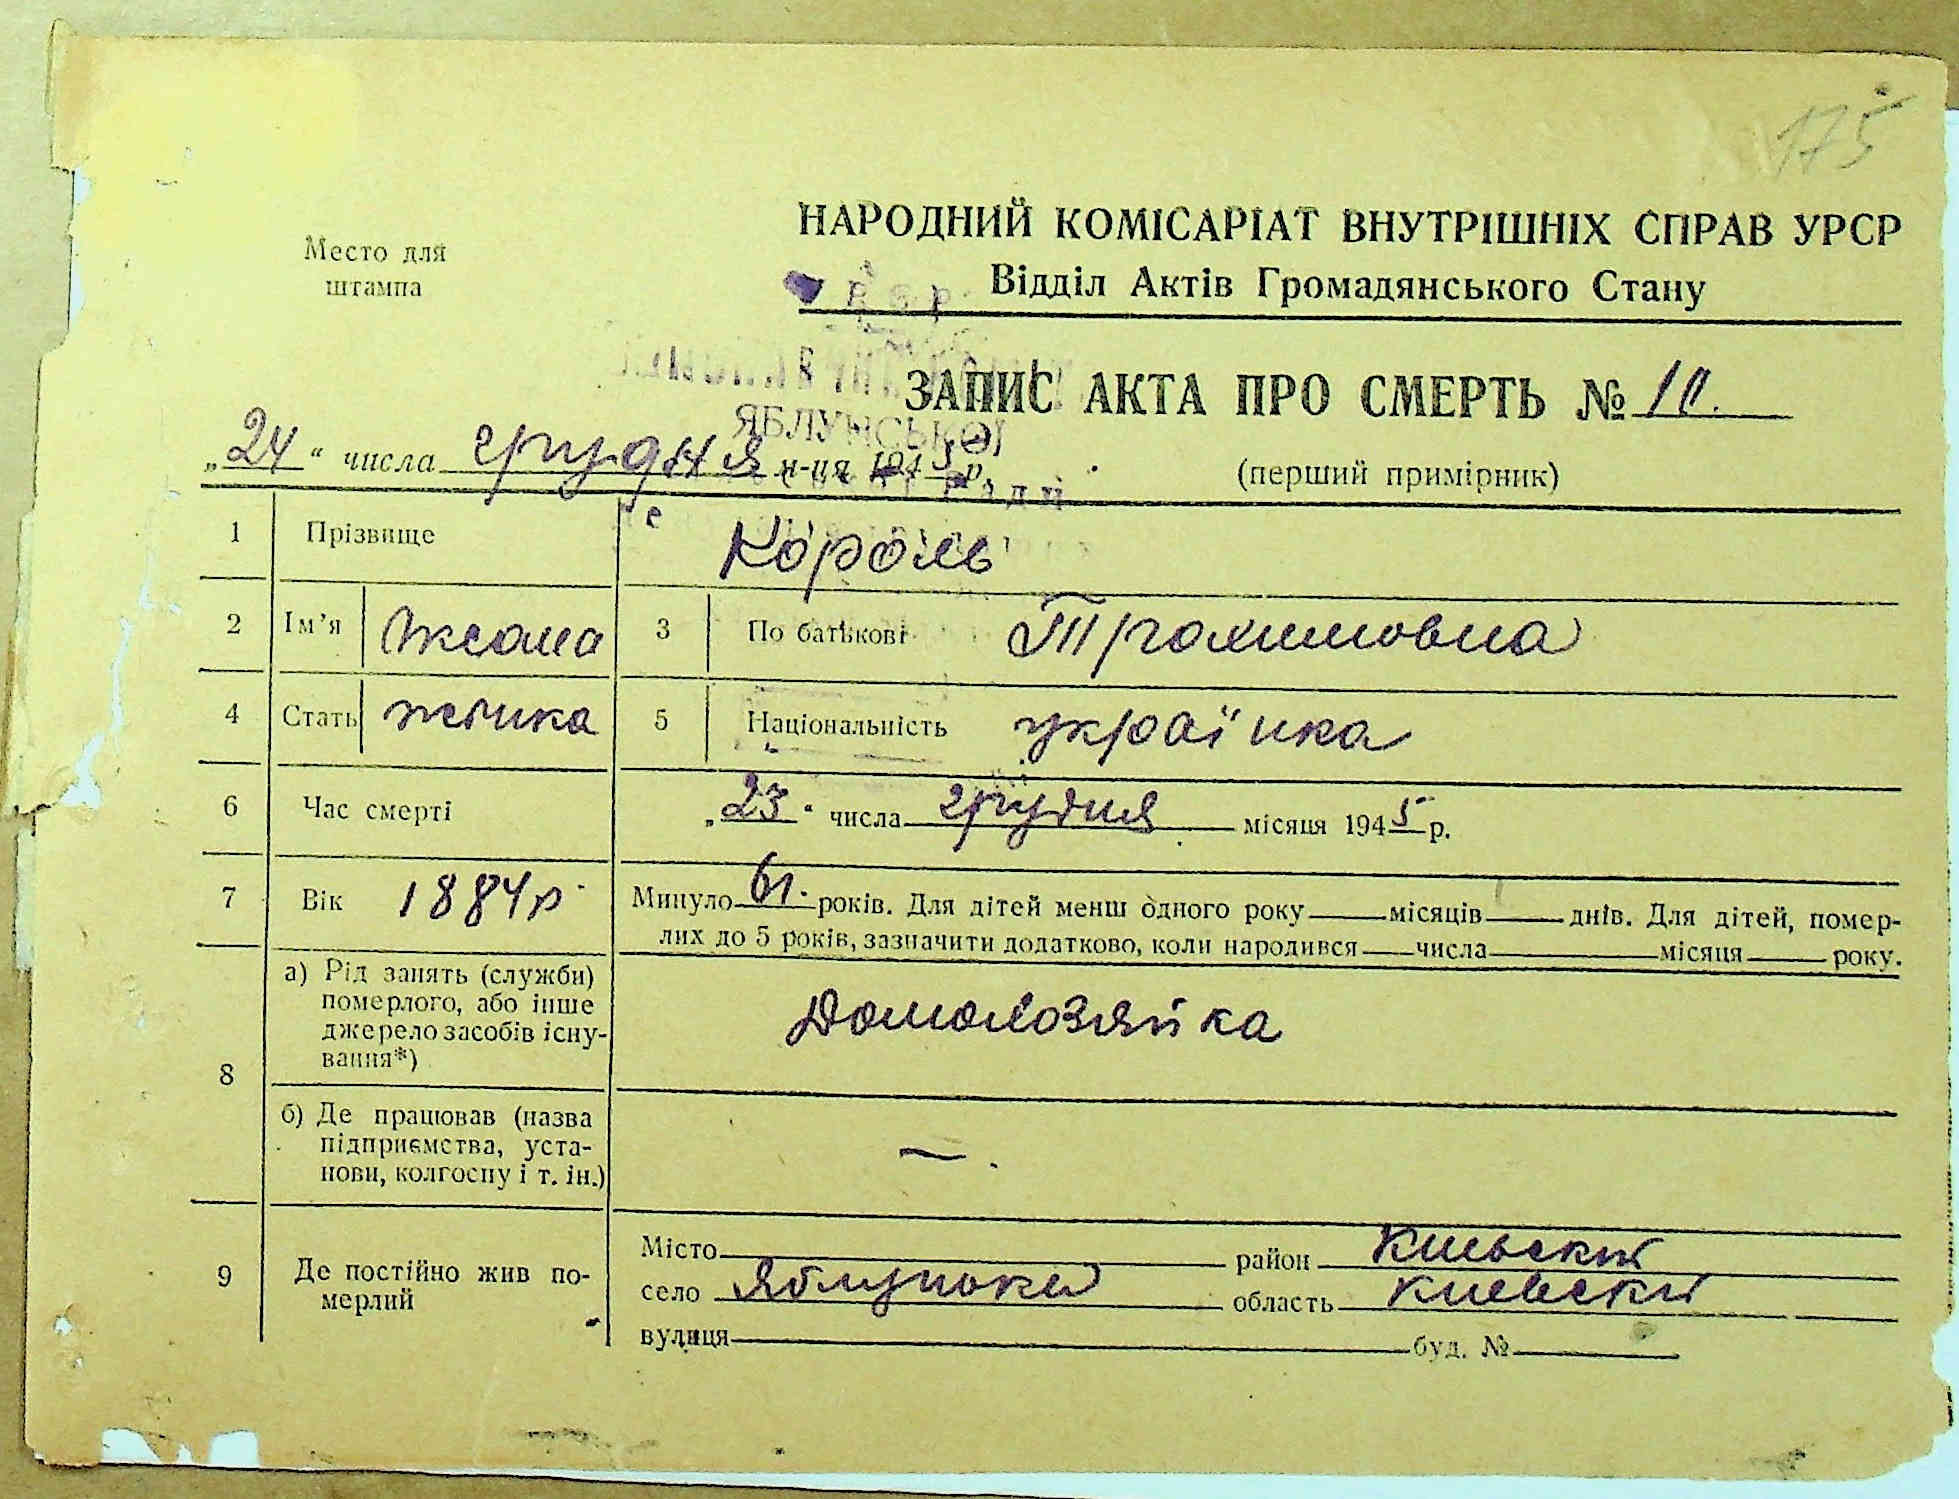 175
НАРОДНИЙ КОМІСАРІАТ ВНУТРІШНІХ СПРАВ УРСР
Відділ Актів Громадянського Стану
Место для
штампа
ЗАПИС АКТА ПРО СМЕРТЬ № 10.
ЯБЛУНСЬКОЇ
„24“ числа грудня м-ця 1945 р.
(перший примірник)
1 Прізвище Король
2 Ім’я 3 По батькові Трохимовна
4 Стать жінка 5 Національність українка
6 Час смерті „23“ числа грудня місяця 1945 р.
7 Вік 1884р Минуло 61. років. Для дітей менш одного року місяців днів. Для дітей, помер-
лих до 5 років, зазначити додатково, коли народився числа місяця року.
8 а) Рід занять (служби)
померлого, або інше
джерело засобів існу-
вання*)
Домохозяйка
б) Де працював (назва
підприємства, уста-
нови, колгоспу і т. ін.)
—
9 Де постійно жив по-
мерлий
Місто район Киевский
село Яблуновка область Киевски
вулиця буд. №